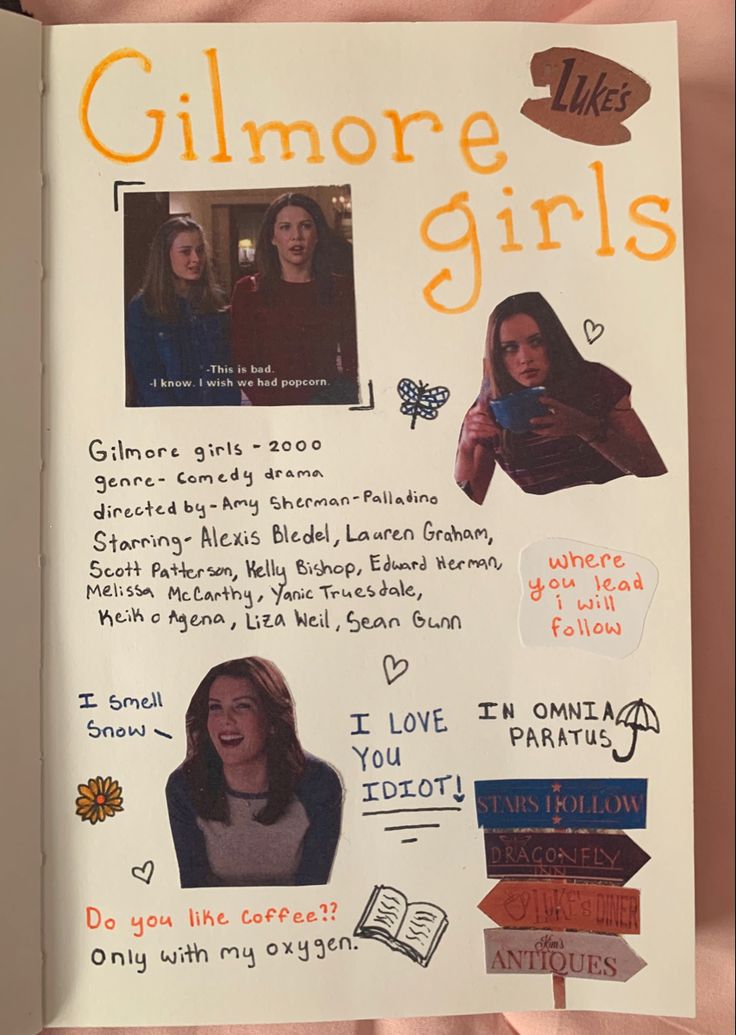 Gilmore
girls
LUKE'S
-This is bad.
-I know. I wish we had popcorn.
Gilmore girls - 2000
genre- comedy drama
directed by- Amy Sherman-Palladino
Starring- Alexis Bledel, Lauren Graham,
Scott Patterson, Kelly Bishop, Edward Herman,
Melissa McCarthy, Yanic Truesdale,
Keiko Agena, Liza Weil, Sean Gunn
where
you lead
i will
follow
I smell
snow
I LOVE
YOU
IDIOT!
IN OMNIA
PARATUS
STARS HOLLOW
DRAGONFLY
INN
LUKE'S DINER
Kim's
ANTIQUES
Do you like coffee??
Only with my oxygen.